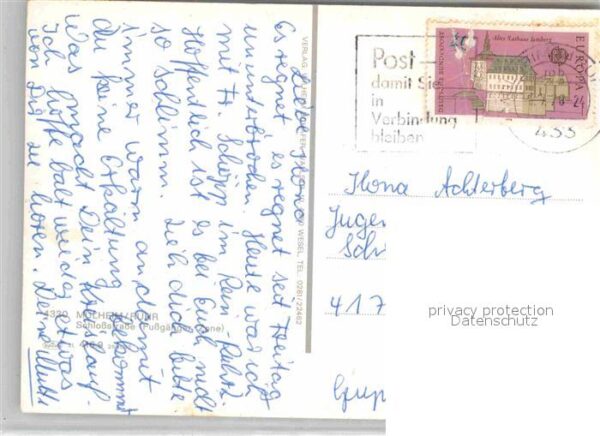 Liebe Ilona!
Es regnet es regnet seit Freitag
ununterbrochen. Heute war ich
mit Fr. Schöpp im Rhein-Ruhrz.
Hoffentlich ist es bei Euch nicht
so schlimm. Zieh dich bitte
immer warm an, damit
du keine Erkältung bekommst
Was macht Dein
Ich hoffe bald wieder etwas
von Dir zu hören. Deine Mutti
4330 MÜLHEIM/RUHR
Schloßstraße (Fußgängerzone)
WESEL, TEL. 0281/22462
Post
damit Sie
in
Verbindung
bleiben
Altes Rathaus Bamberg
EUROPA
DEUTSCHE BUNDESPOST
433
Ilona Achterberg
Juge
Sch
417
privacy protection
Datenschutz